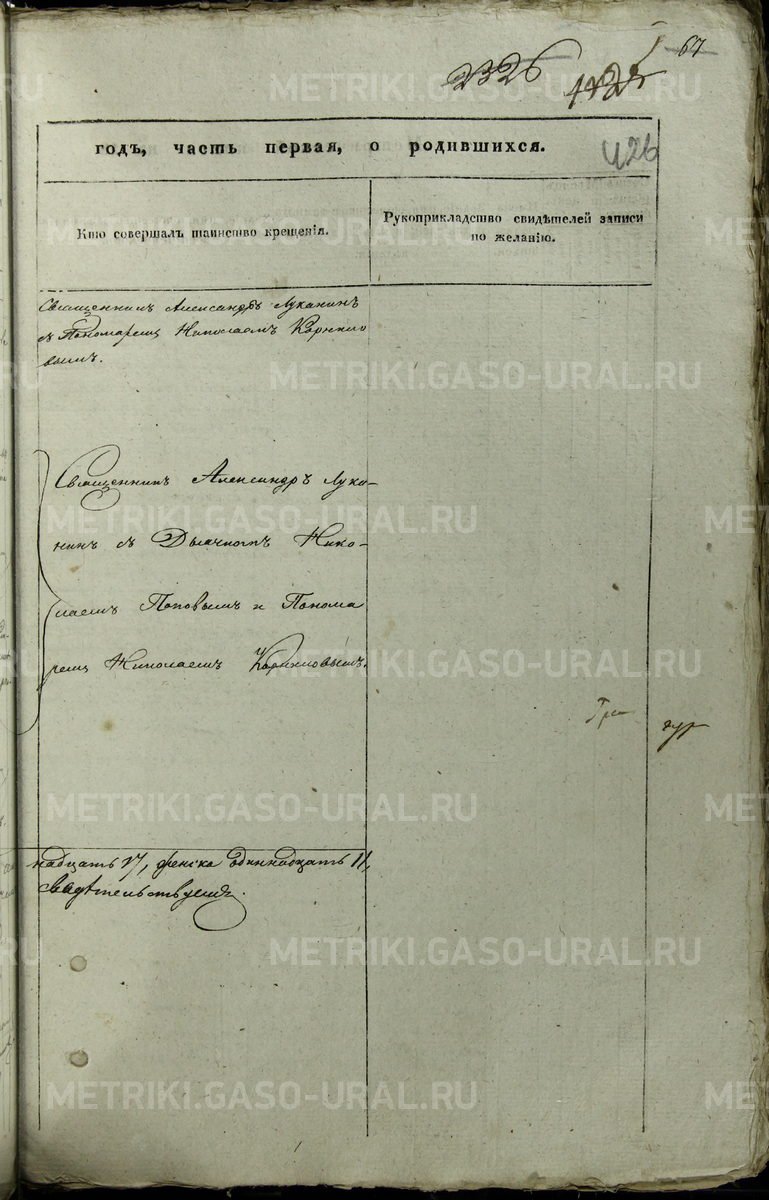 67
2326
426
годъ, часть первая, о родившихся.
Кто совершалъ таинство крещенія.
Рукоприкладство свидѣтелей записи
по желанію.
Священникъ Александръ Луканинъ
съ Пономаремъ Николаемъ Корнило
вымъ.
Священникъ Александръ Лука-
нинъ съ Дьячкомъ Нико-
лаемъ Поповымъ и Понома
ремъ Николаемъ Корниловымъ.
надцать 17, женска одиннадцать 11,
свидѣтельствуемъ.
METRIKI.GASO-URAL.RU